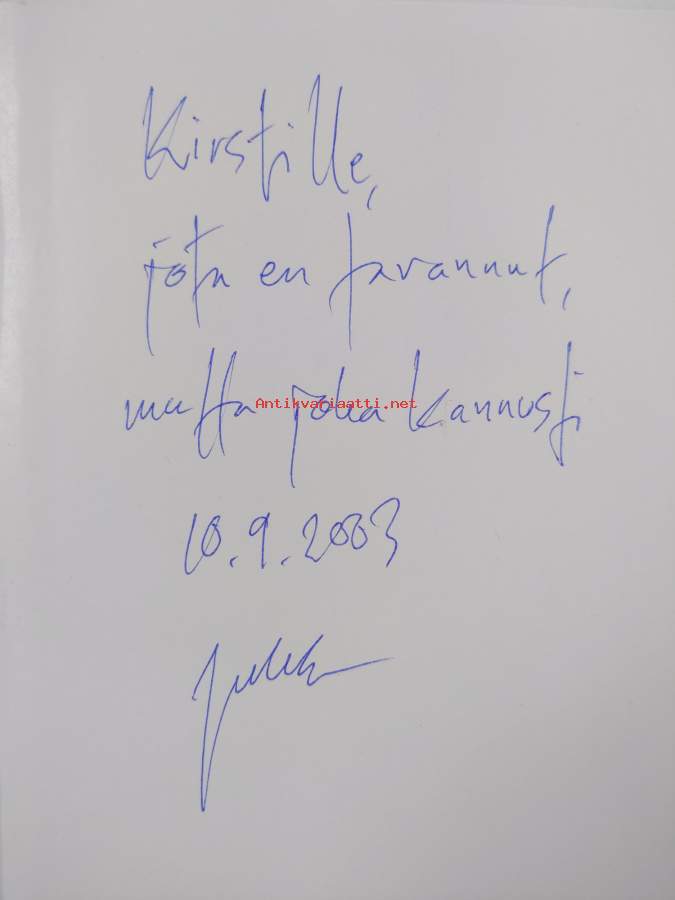 Kirstille,
jota en tavannut,
mutta joka kannusti
Antikvariaatti.net
10.9.2003